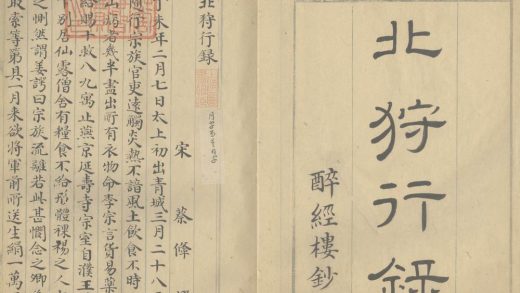 北狩行錄
醉經樓鈔
北狩行錄
宋 蔡絛
未年二月七日太上初出青城三月二十八
隨行宗族官吏遠觸炎熱不諳風土飲食不時
病者幾半盡出所有衣物命李宗言貨易藥
給賜十救八九寓止燕京延壽寺宗室自濮王
別居仙露僧舍有糧食不給形體裸裼之人
之惻然謂姜諤曰宗族流離若此甚憫念之卿
取索等第具一月來欲將軍前所送生絹一萬